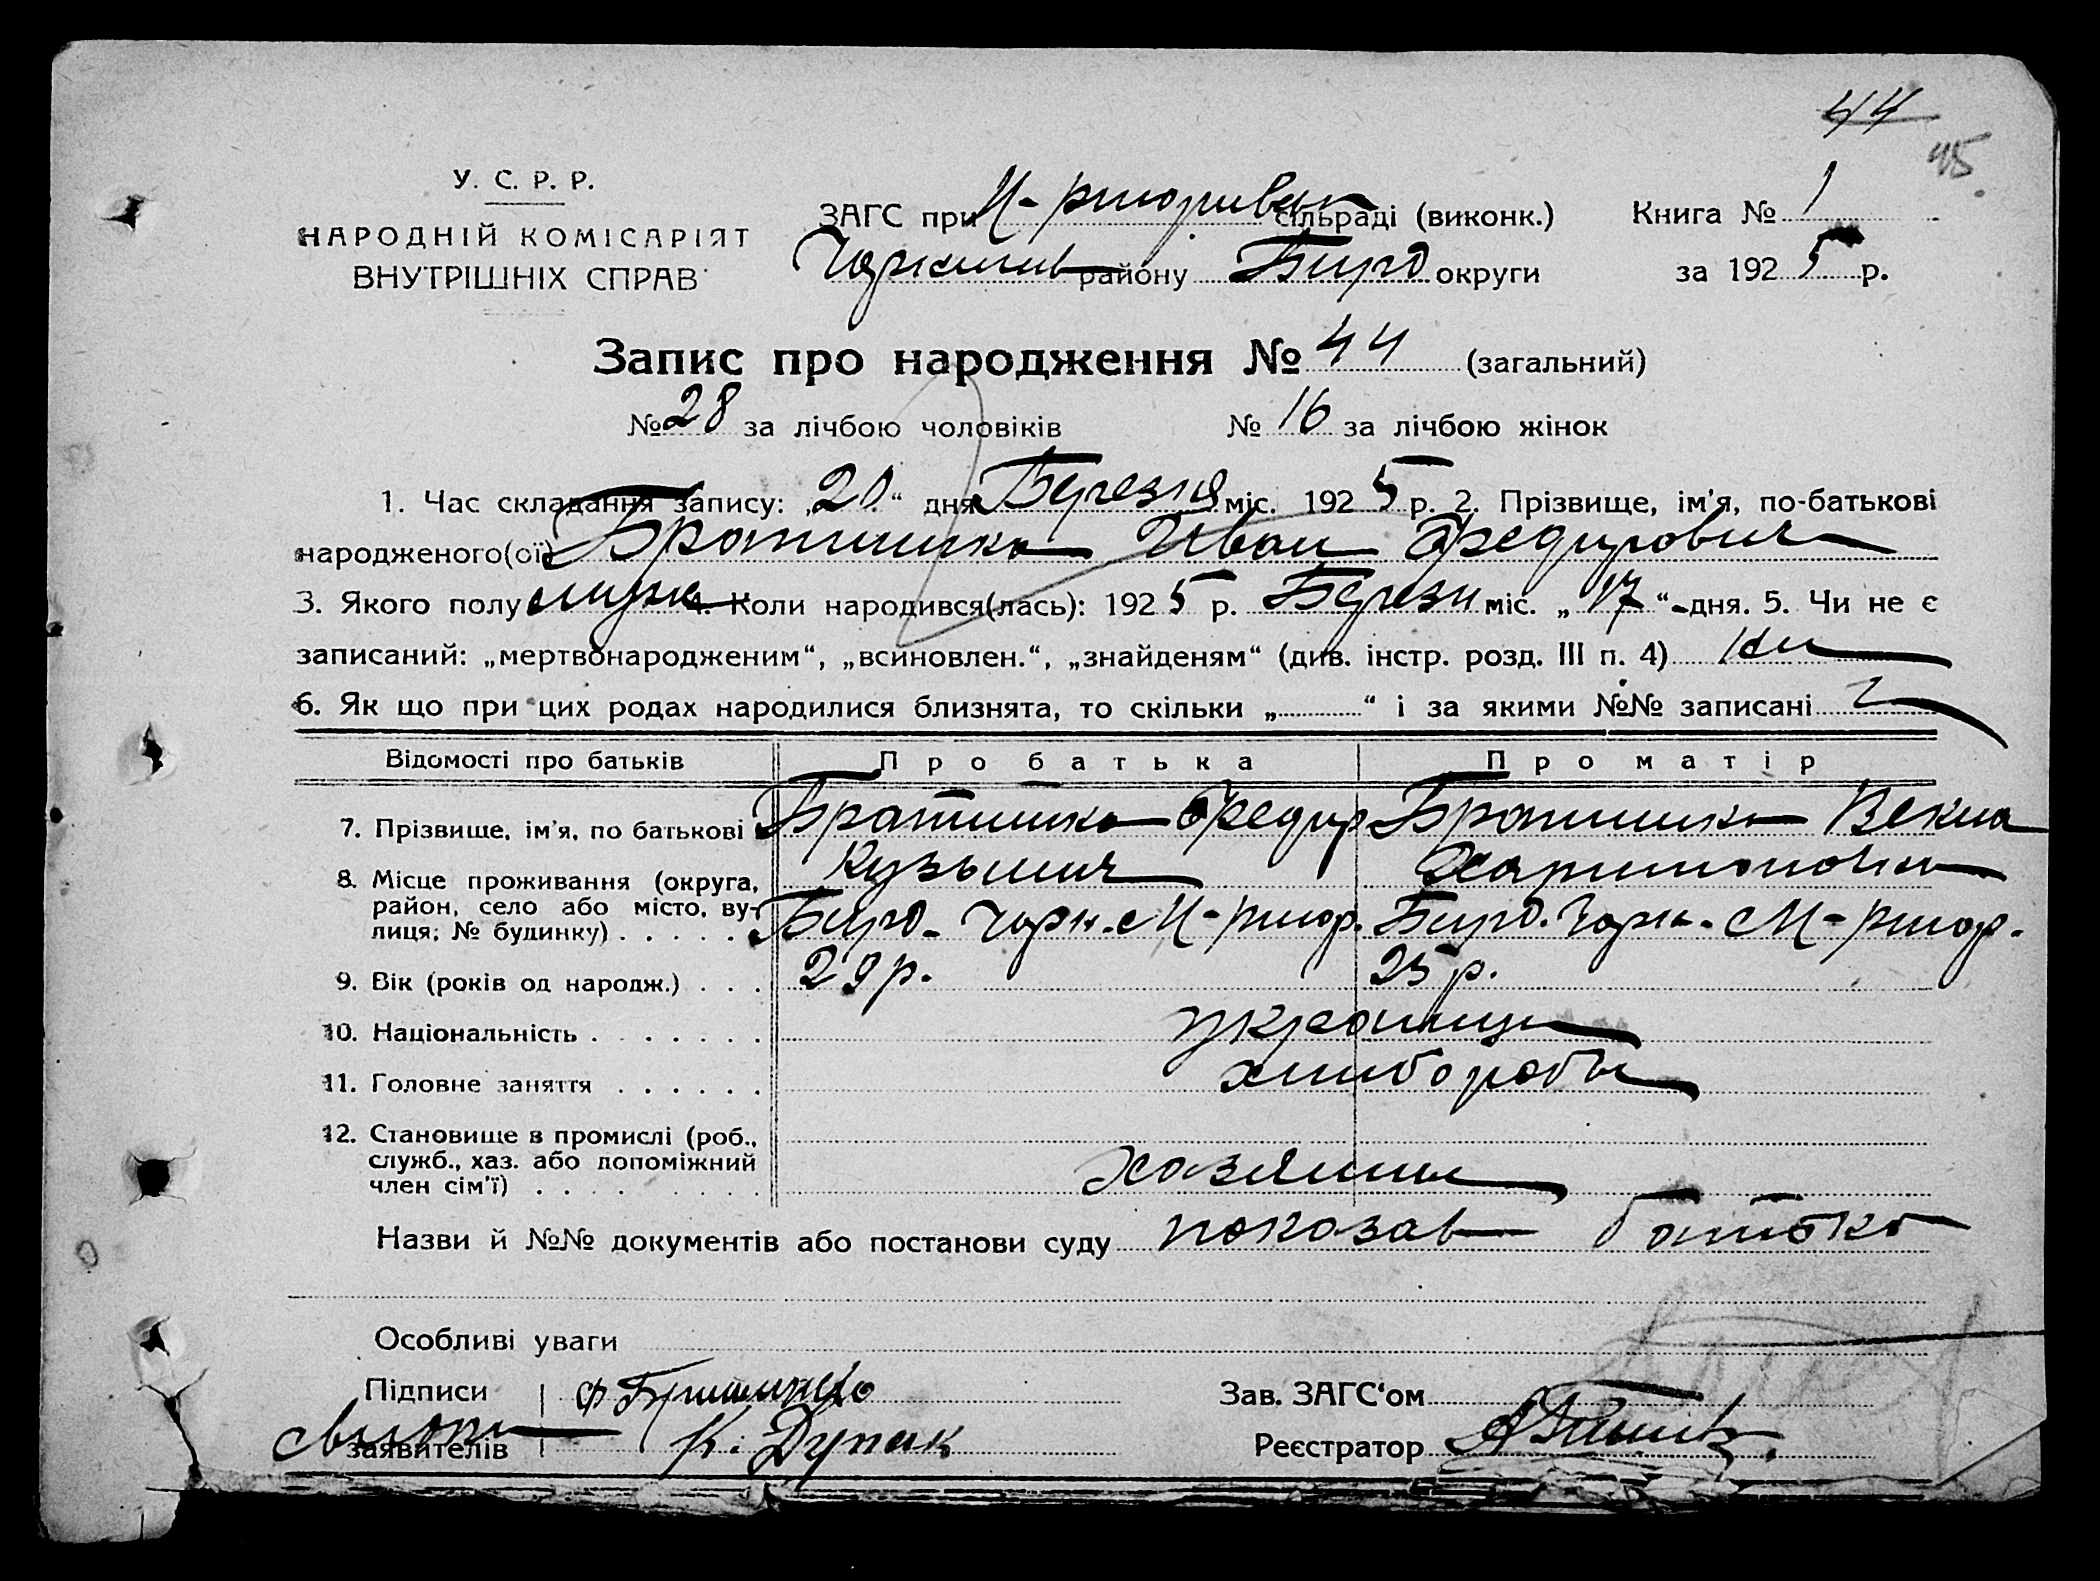 44
45
У. С. Р. Р.
НАРОДНІЙ КОМІСАРІЯТ
ВНУТРІШНІХ СПРАВ
ЗАГС при сільраді (виконк.) Книга № 1
району округи за 1925 р.
Запис про народження № 44 (загальний)
№ 28 за лічбою чоловіків № 16 за лічбою жінок
1. Час складання запису: „20“ дня Березня міс. 1925 р. 2. Прізвище, ім'я, по-батькові
народженого(ої) Братишко Иван Федирович
3. Якого полу муж 4. Коли народився(лась): 1925 р. Березн міс. „17“ дня. 5. Чи не є
записаний: „мертвонародженим“, „всиновлен.“, „знайденям“ (див. інстр. розд. III п. 4) ни
6. Як що при цих родах народилися близнята, то скільки „ “ і за якими №№ записані
Відомості про батьків Про батька Про матір
7. Прізвище, ім'я, по батькові Братишко Федир Братишко Векла
Кузьмич
8. Місце проживання (округа, район, село або місто, вулиця; № будинку)
9. Вік (років од народж.) 29 р. 25 р.
10. Національність украинци
11. Головне заняття хлибороби
12. Становище в промислі (роб., служб., хаз. або допоміжний член сім'ї) хазяини
Назви й №№ документів або постанови суду показав батько
Особливі уваги
Підписи Зав. ЗАГС'ом
заявителів К. Дупак Реєстратор